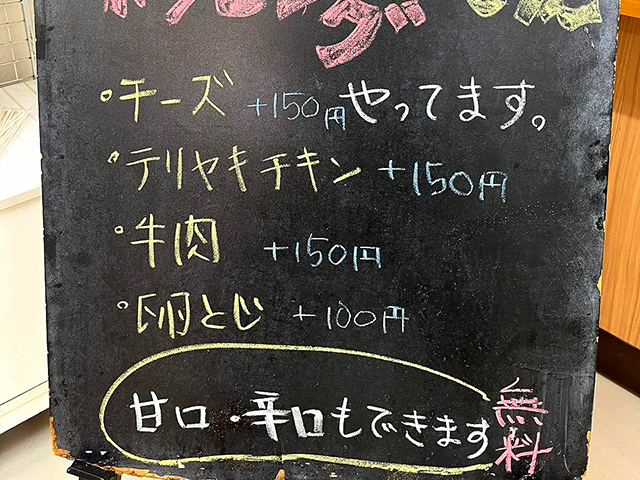 ・チーズ +150円やってます。
・テリヤキチキン +150円
・牛肉 +150円
・卵とじ +100円
甘口・辛口もできます 無料